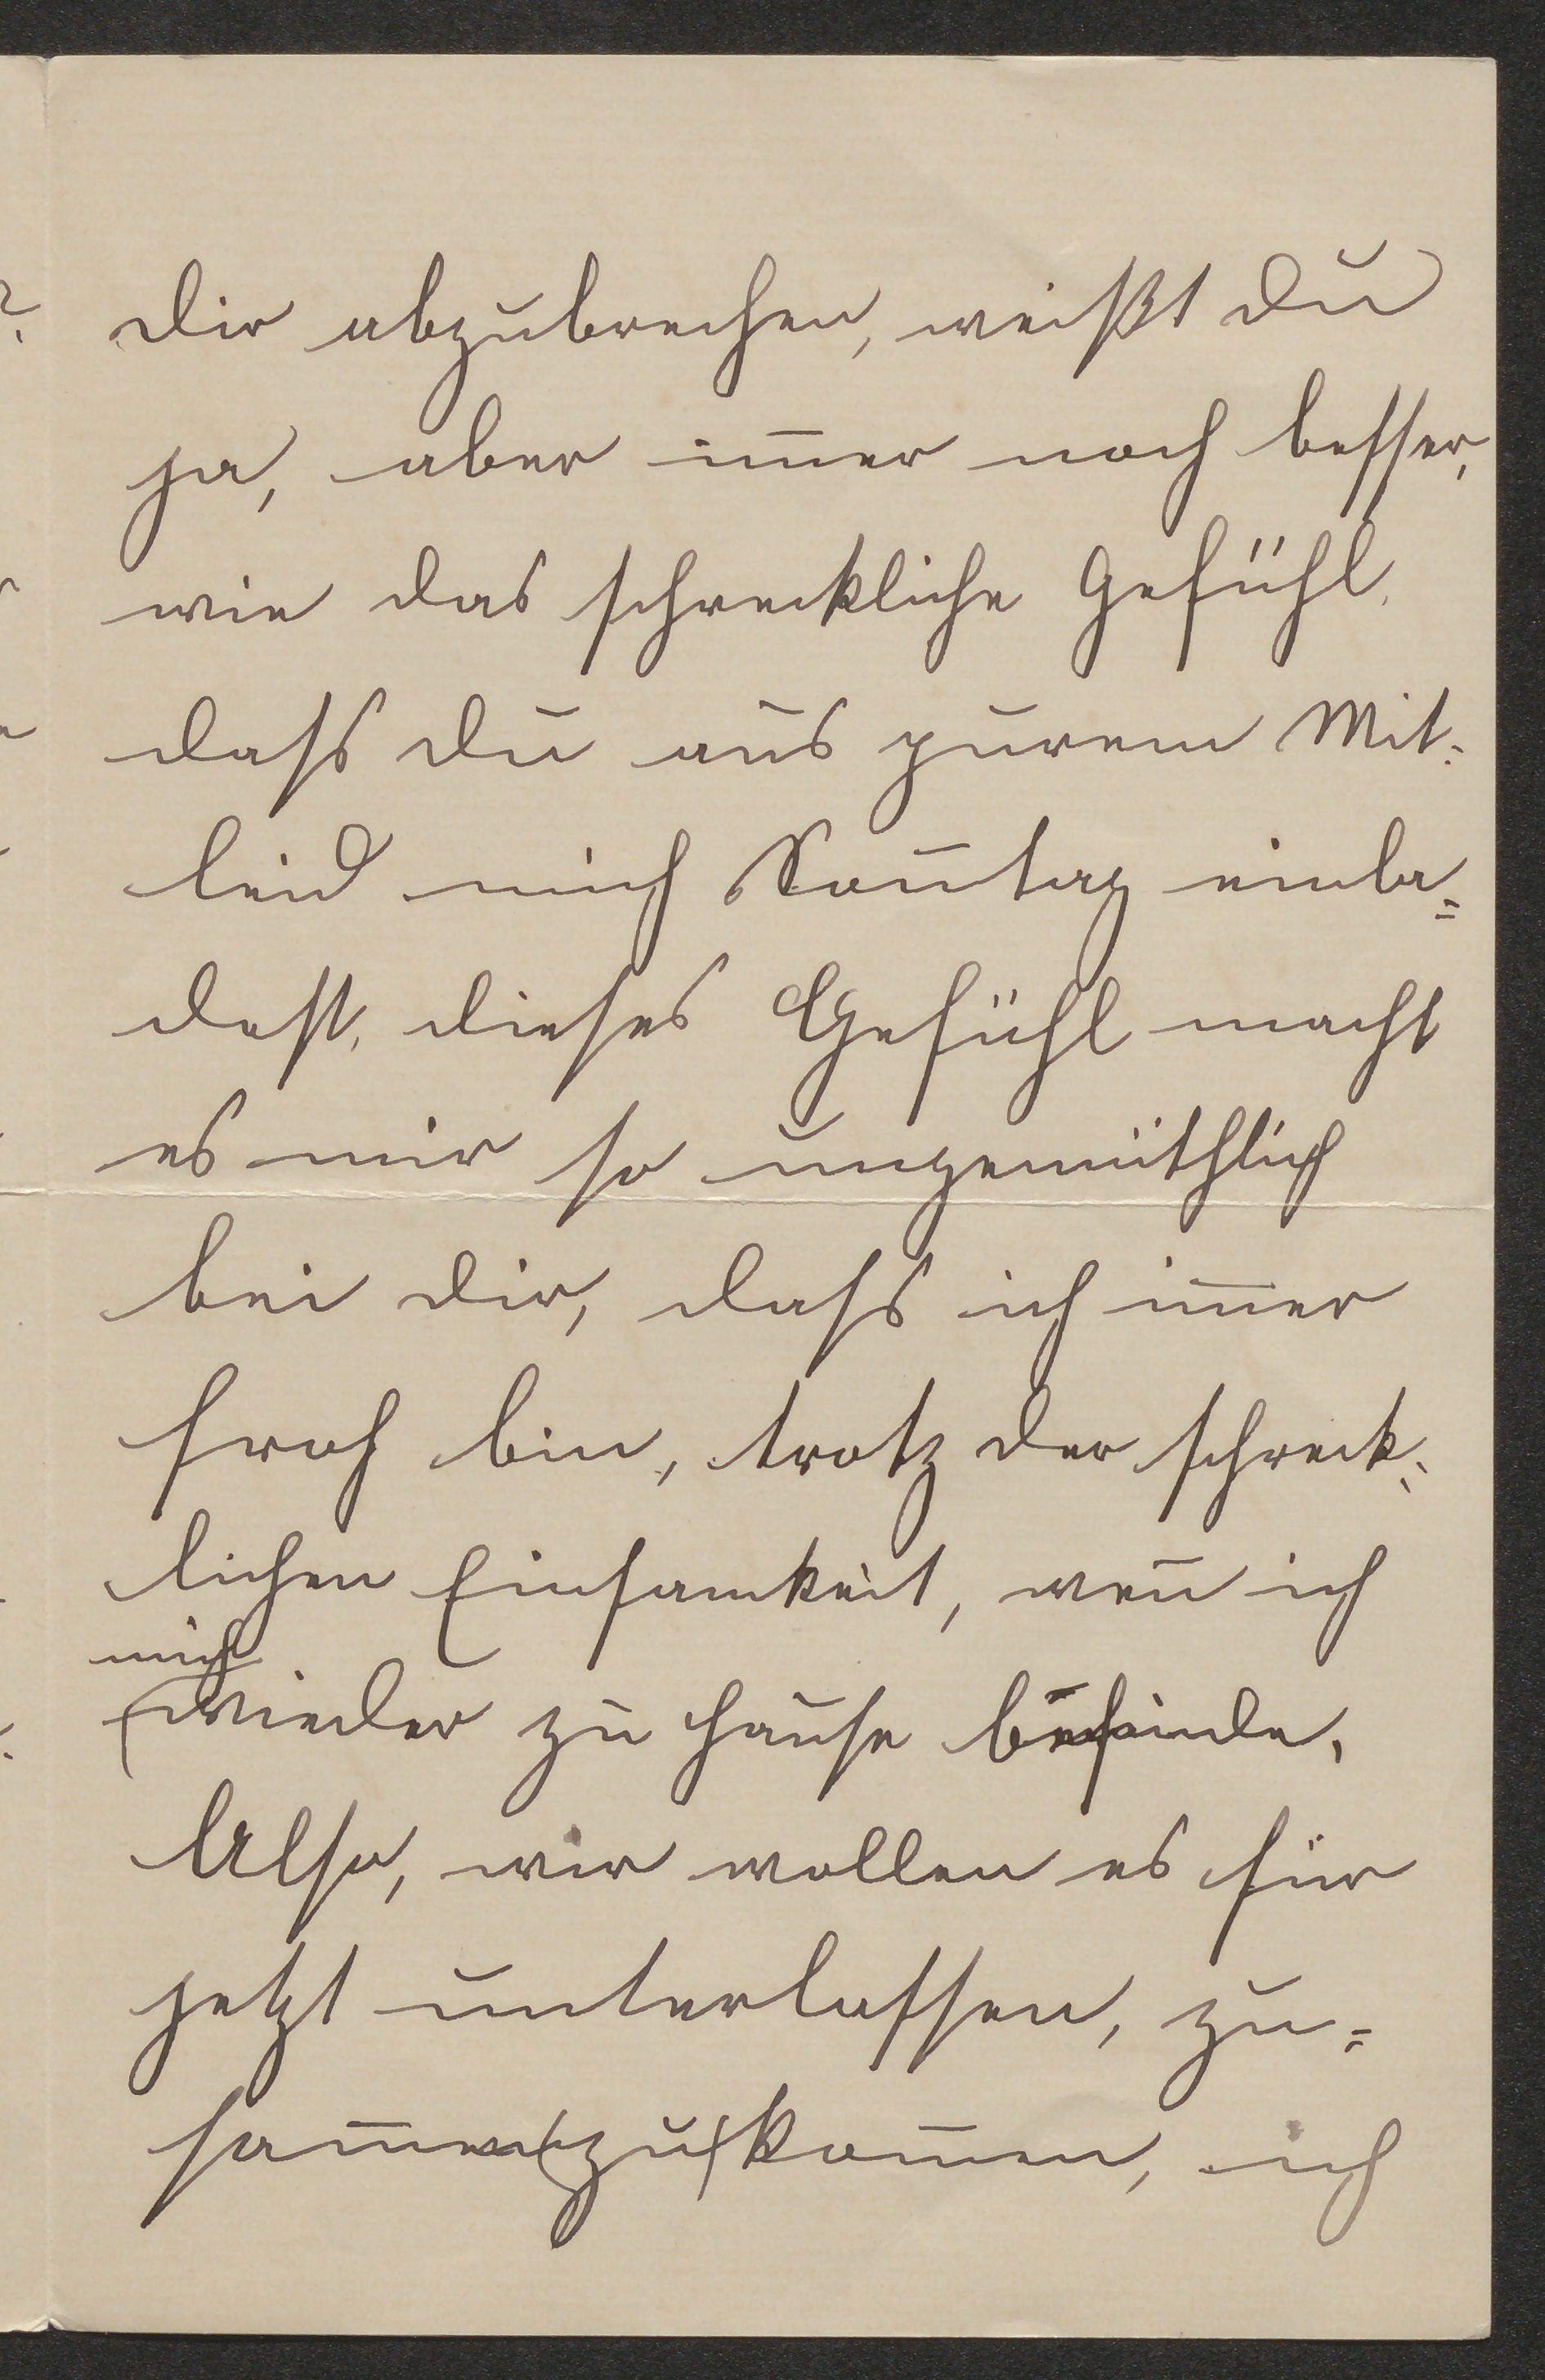 dir abzubrechen, weißt du
ja, aber im̅er noch besser,
wie das schreckliche Gefühl,
dass du aus purem Mit=
leid mich Son̅tag einla=
dest, dieses Gefühl macht
es mir so ungemüthlich
bei dir, dass ich im̅er
froh bin, trotz der schreck=
lichen Einsamkeit, wen̅ ich
mich
wieder zu Hause befinde.
Also, wir wollen es für
jetzt unterlassen, zu=
sam̅enzukom̅en, ich